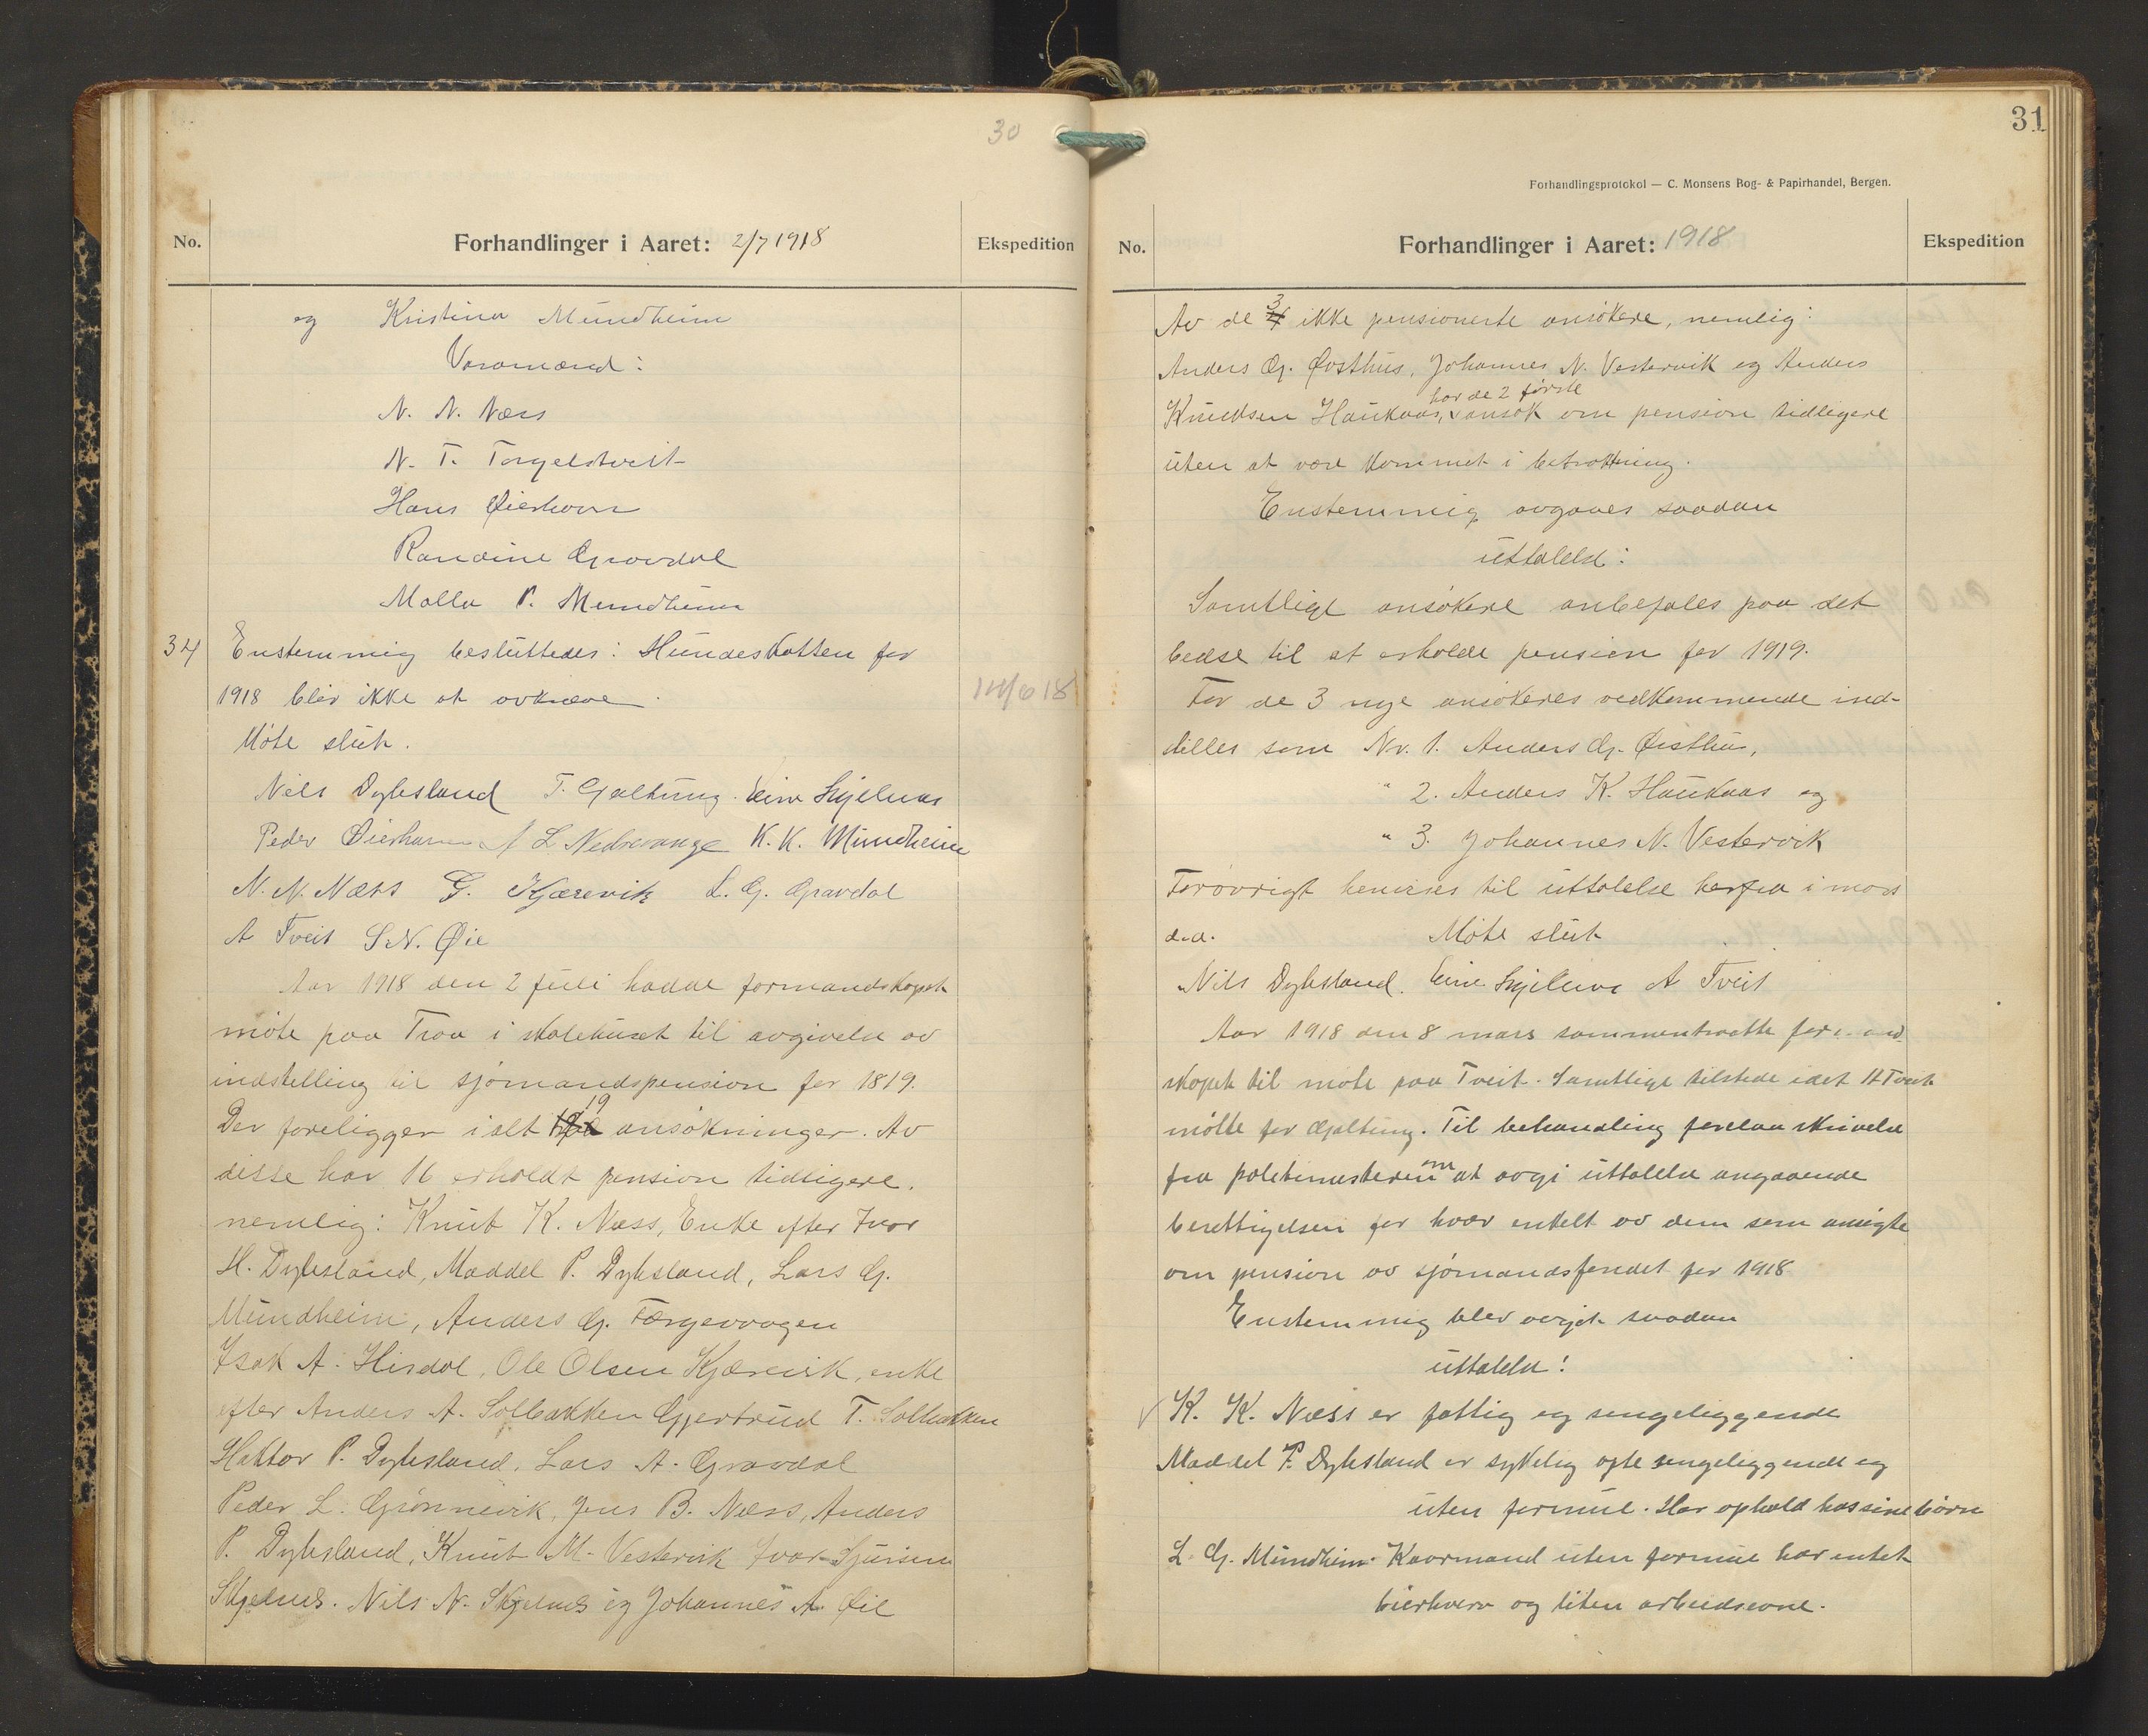 30
No.
Forhandlinger i Aaret: 2/7 1918
Ekspedition
og Kristina Mundheim
Varamænd:
N. N. Næss
N. T. Torgelstveit
Hans Øierhavn
Randine Gravdal
Malla P. Mundheim
34 Enstemmig besluttedes: Hundeskatten for
1918 blir ikke at avkræve.
14/6 18
Møte slut.
Nils Dyksland T. Galtung. Eine Skjelnæs
Peder Øierhavn L Nedrevange K. K. Mundheim
N. N. Næss G. Kjærevik L. G. Gravdal
A Tveit S N. Øie
Aar 1918 den 2 juli hadde formandskapet
møte paa Troa i skolehuset til avgivelse av
indstilling til sjømandspension for 1819.
Der foreligger ialt 19 ansökninger. Av
disse har 16 erholdt pension tidligere.
nemlig: Knut K. Næss, Enke efter Ivar
H. Dyksland, Maddel P. Dyksland, Lars G.
Mundheim, Anders G. Færgevaagen
Isak A. Hisdal, Ole Olsen Kjærevik, enke
efter Anders A. Solbakken Gjertrud T. Solbakken
Haktor P. Dyksland, Lars A. Gravdal
Peder L. Grønnevik, Jens B. Næss, Anders
P. Dyksland, Knut M. Vestervik Ivar Sjursen
Skjelnes. Nils N. Skjelnes og Johannes A. Øie
31
Forhandlingsprotokol — C. Monsens Bog- & Papirhandel, Bergen.
No.
Forhandlinger i Aaret: 1918
Ekspedition
Av de 3 ikke pensionerte ansökere, nemlig:
Anders G. Østhus, Johannes N. Vestervik og Anders
har de 2 første
Knudsen Haukaas, ansøk om pension tidligere
uten at være kommet i betraktning.
Enstemmig avgaves saadan
uttalelse:
Samtlige ansökere anbefales paa det
bedse til at erholde pension for 1919.
For de 3 nye ansökeres vedkommende ind-
stilles som Nr. 1. Anders G. Østhus,
" 2. Anders K. Haukaas og
" 3. Johannes N. Vestervik
Forøvrigt henvises til uttalelse herfra i mars
d.a. Møte slut
Nils Dyksland. Eine Skjelnæs A Tveit
Aar 1918 den 8 mars sammentraatte formand
skapet til møte paa Tveit. Samtlige tilstede idet A Tveit
møtte for Galtung. Til behandling forelaa skrivelse
om
fra politimesteren at avgi uttalelse angaaende
berettigelsen for hvær enkelt av dem som ansøgte
om pension av sjømandsfondet for 1918
Enstemmig blev avgit saadan
uttalelse!
K. K. Næss er fattig og sengeliggende
Maddel P. Dyksland er sykelig ofte sengeliggende og
uten formue. Har ophold hos sine børn
L. G. Mundheim Kaarmand uten formue har intet
bierhverv og liten arbeidsevne.